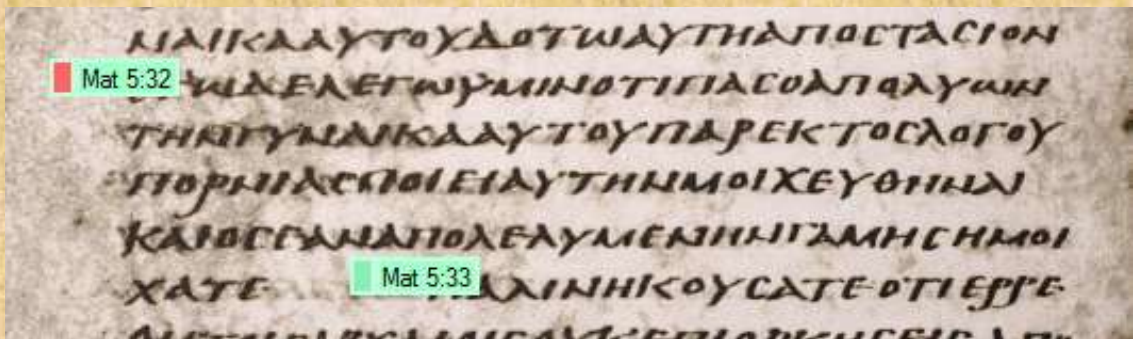 ΝΑΙΚΑΑΥΤΟΥΔΟΤΩΑΥΤΗΑΠΟCΤΑCΙΟΝ
Mat 5:32 ΩΔΕΛΕΓΩΥΜΙΝΟΤΙΠΑCΟΑΠΟΛΥΩΝ
ΤΗΝΓΥΝΑΙΚΑΑΥΤΟΥΠΑΡΕΚΤΟCΛΟΓΟΥ
ΠΟΡΝΙΑCΠΟΙΕΙΑΥΤΗΝΜΟΙΧΕΥΘΗΝΑΙ
ΚΑΙΟCΕΑΝΑΠΟΛΕΛΥΜΕΝΗΝΓΑΜΗCΗΜΟΙ
ΧΑΤΕ Mat 5:33 ΑΛΙΝΗΚΟΥCΑΤΕΟΤΙΕΡΡΕ